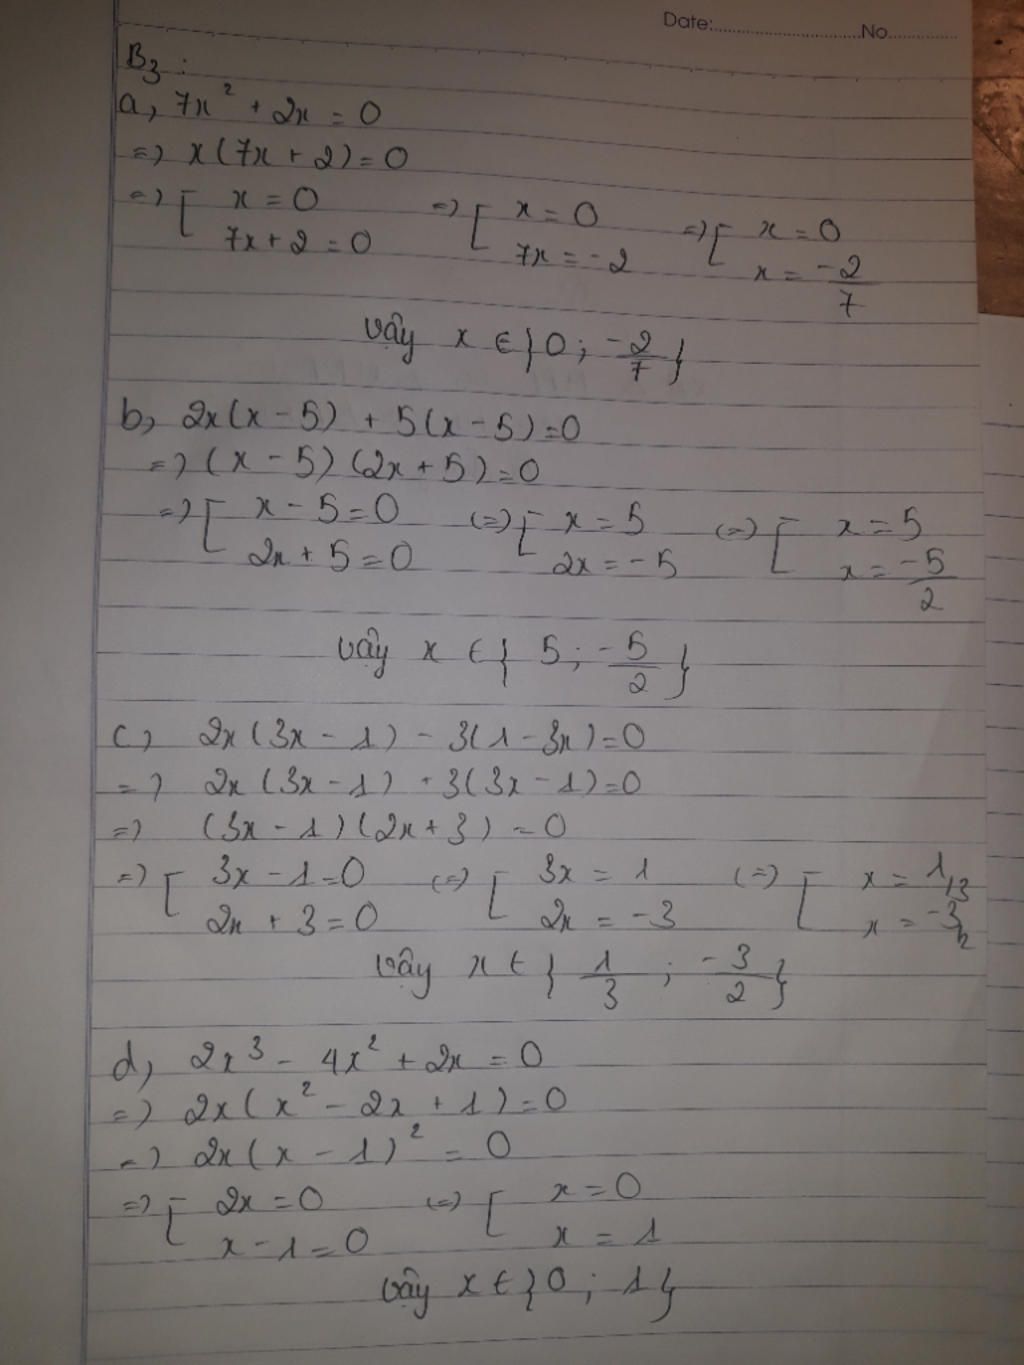 Date:..............................No..............
B3 :
a, 7x² + 2x = 0
=> x(7x + 2) = 0
=> [ x = 0 => [ x = 0 => [ x = 0
7x + 2 = 0 7x = -2 x = -2/7
Vậy x ∈ } 0 ; -2/7 }
b, 2x(x - 5) + 5(x - 5) = 0
=> (x - 5) (2x + 5) = 0
=> [ x - 5 = 0 (=> [ x = 5 (=> [ x = 5
2x + 5 = 0 2x = -5 x = -5/2
Vậy x ∈ { 5 ; -5/2 }
c, 2x (3x - 1) - 3(1 - 3x) = 0
=> 2x (3x - 1) + 3(3x - 1) = 0
=> (3x - 1) (2x + 3) = 0
=> [ 3x - 1 = 0 (=> [ 3x = 1 (=> [ x = 1/3
2x + 3 = 0 2x = -3 x = -3/2
Vậy x ∈ } 1/3 ; -3/2 }
d, 2x³ - 4x² + 2x = 0
=> 2x (x² - 2x + 1) = 0
=> 2x (x - 1)² = 0
=> [ 2x = 0 (=> [ x = 0
x - 1 = 0 x = 1
Vậy x ∈ } 0 ; 1 }